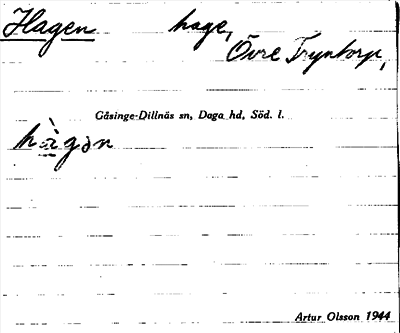 Hagen hage,
Övre Tryntorp,
Gåsinge-Dillnäs sn, Daga hd, Söd. l.
hà̱gən
Artur Olsson 1944